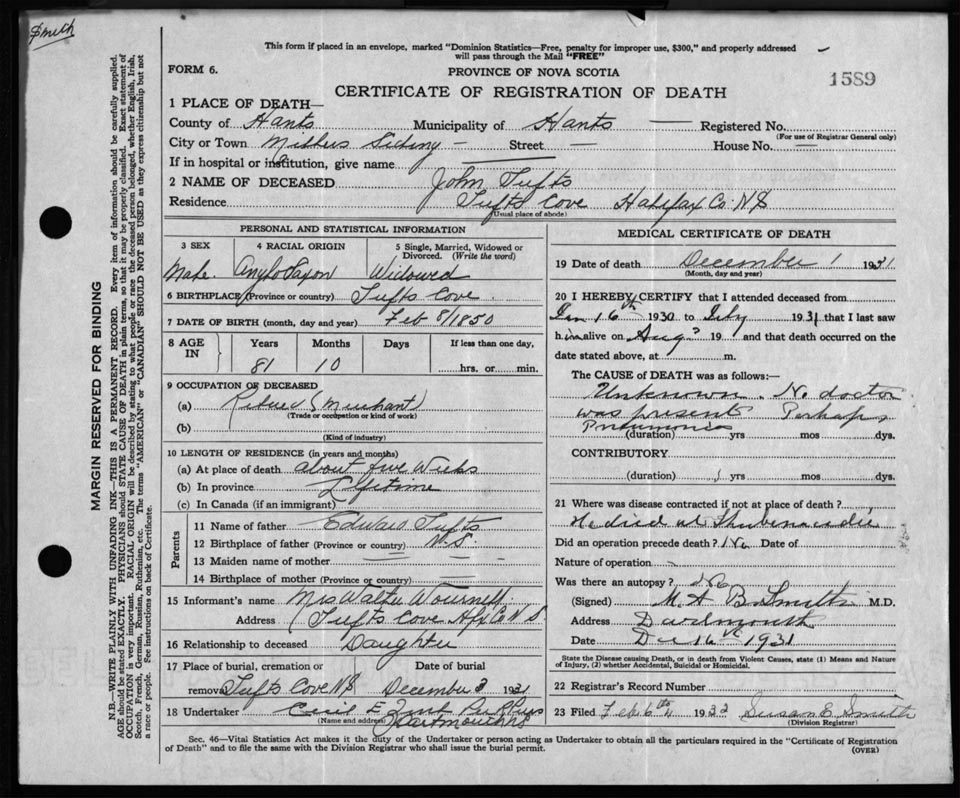 Smith
This form if placed in an envelope, marked "Dominion Statistics—Free, penalty for improper use, $300," and properly addressed
will pass through the Mail "FREE"
FORM 6.
PROVINCE OF NOVA SCOTIA
1589
CERTIFICATE OF REGISTRATION OF DEATH
1 PLACE OF DEATH—
County of Hants Municipality of Hants — Registered No.
(For use of Registrar General only)
City or Town — Street — House No. —
If in hospital or institution, give name
2 NAME OF DECEASED John Tufts
Residence Tufts Cove Halifax Co. NS
(Usual place of abode)
PERSONAL AND STATISTICAL INFORMATION
3 SEX 4 RACIAL ORIGIN 5 Single, Married, Widowed or Divorced. (Write the word)
Male. Anglo Saxon Widowed
6 BIRTHPLACE (Province or country) Tufts Cove.
7 DATE OF BIRTH (month, day and year) Feb 8/1850
8 AGE IN Years Months Days If less than one day,
81 10 hrs. or min.
9 OCCUPATION OF DECEASED
(a) Retired (Merchant)
(Trade or occupation or kind of work)
(b)
(Kind of industry)
10 LENGTH OF RESIDENCE (in years and months)
(a) At place of death about five Weeks
(b) In province Lifetime
(c) In Canada (if an immigrant)
Parents
11 Name of father Edward Tufts
12 Birthplace of father (Province or country) N.S.
13 Maiden name of mother —
14 Birthplace of mother (Province or country) —
15 Informant's name Mrs Walter
Address Tufts Cove Hfx Co N S
16 Relationship to deceased Daughter
17 Place of burial, cremation or Date of burial
removal Tufts Cove NS December 3 1931
18 Undertaker Cecil E
(Name and address) Dartmouth NS
MEDICAL CERTIFICATE OF DEATH
19 Date of death December 1 1931
(Month, day and year)
20 I HEREBY CERTIFY that I attended deceased from
16th 1930 to 1931 that I last saw
him alive on Aug? 19 and that death occurred on the
date stated above, at m.
The CAUSE of DEATH was as follows:—
Unknown. No doctor
was present Perhaps
Pneumonia
(duration) yrs mos dys.
CONTRIBUTORY
(duration) yrs mos dys.
21 Where was disease contracted if not at place of death?
He died at Shubenacadie
Did an operation precede death? No Date of
Nature of operation
Was there an autopsy? No
(Signed) M. A. B. Smith M.D.
Address Dartmouth
Date Dec 16th 1931
State the Disease causing Death, or in death from Violent Causes, state (1) Means and Nature
of Injury, (2) whether Accidental, Suicidal or Homicidal.
22 Registrar's Record Number
23 Filed Feb. 6th 1932 Susan E. Smith
(Division Registrar)
Sec. 46—Vital Statistics Act makes it the duty of the Undertaker or person acting as Undertaker to obtain all the particulars required in the "Certificate of Registration
of Death" and to file the same with the Division Registrar who shall issue the burial permit.
(OVER)
MARGIN RESERVED FOR BINDING
N.B.—WRITE PLAINLY WITH UNFADING INK—THIS IS A PERMANENT RECORD. Every item of information should be carefully supplied.
AGE should be stated EXACTLY. PHYSICIANS should STATE CAUSE OF DEATH in plain terms, so that it may be properly classified. Exact statement of
OCCUPATION is very important. RACIAL ORIGIN will be described by stating to what people or race the deceased person belonged, whether English, Irish,
Scotch, French, German, Russian, Ruthenian, etc. The terms "AMERICAN" or "CANADIAN" SHOULD NOT BE USED as they express citizenship but not
a race or people. See instructions on back of Certificate.